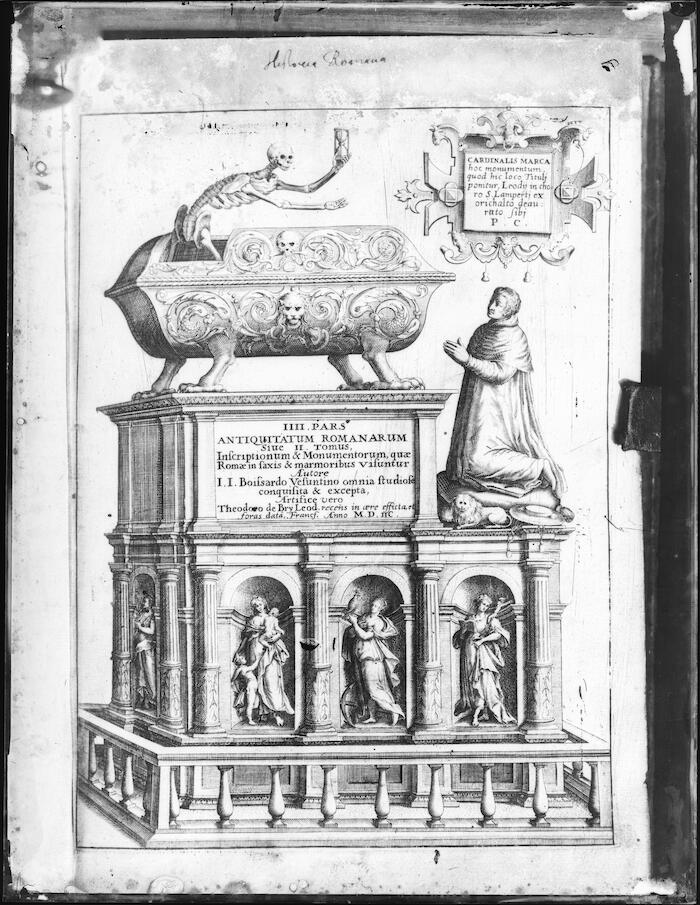 Historia Romana
CARDINALIS MARCA
hoc monumentum,
quod hic loco Tituli
ponitur, Leodij in cho-
ro S. Lamperti ex
orichalto deau-
rato sibj
P. C.
IIII. PARS
ANTIQUITATUM ROMANARUM
Siue II. Tomus,
Inscriptionum & Monumentorum, quæ
Romæ in saxis & marmoribus visuntur
Autore
I. I. Boissardo Vesuntino omnia studiose
conquisita & excepta,
Artifice vero
Theodoro de Bry Leod. recens in ære efficta, et
foras data. Francf. Anno M. D. IIC.